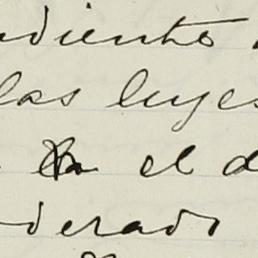 diento
las leyes
el d
derado